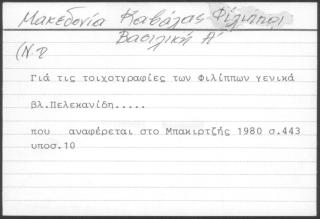 Μακεδονία Καβάλας Φίλιπποι
Βασιλική Α'
(Ν.Φ
Γιά τις τοιχογραφίες των Φιλίππων γενικά
βλ.Πελεκανίδη.....
που αναφέρεται στο Μπακιρτζής 1980 σ.443
υποσ.10